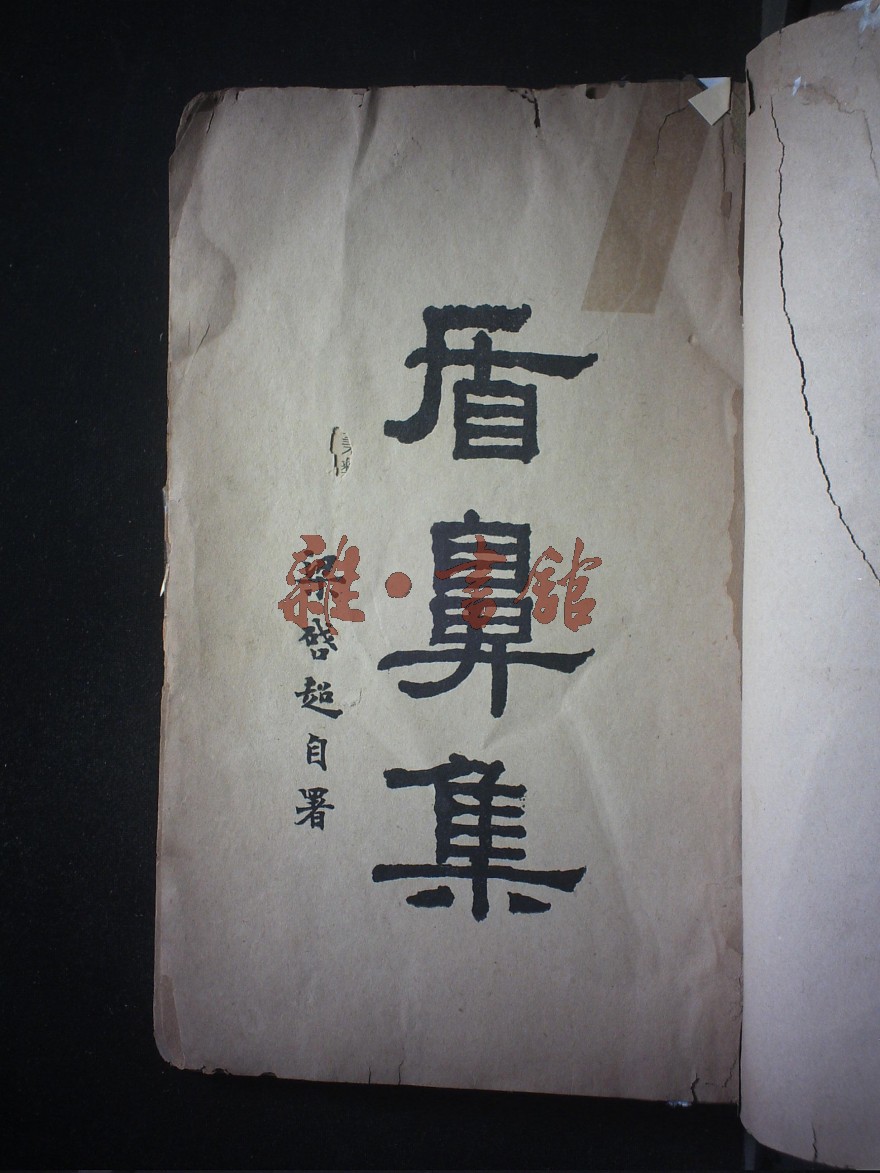 盾鼻集
梁啓超自署
雜·書館